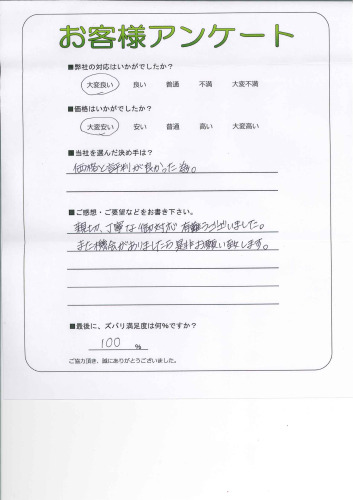 お客様アンケート
■弊社の対応はいかがでしたか？
大変良い 良い 普通 不満 大変不満
■価格はいかがでしたか？
大変安い 安い 普通 高い 大変高い
■当社を選んだ決め手は？
価格と評判が良かった為。
■ご感想・ご要望などをお書き下さい。
親切、丁寧な御対応 有難うございました。
また機会がありましたら是非お願い致します。
■最後に、ズバリ満足度は何％ですか？
100 ％
ご協力頂き、誠にありがとうございました。